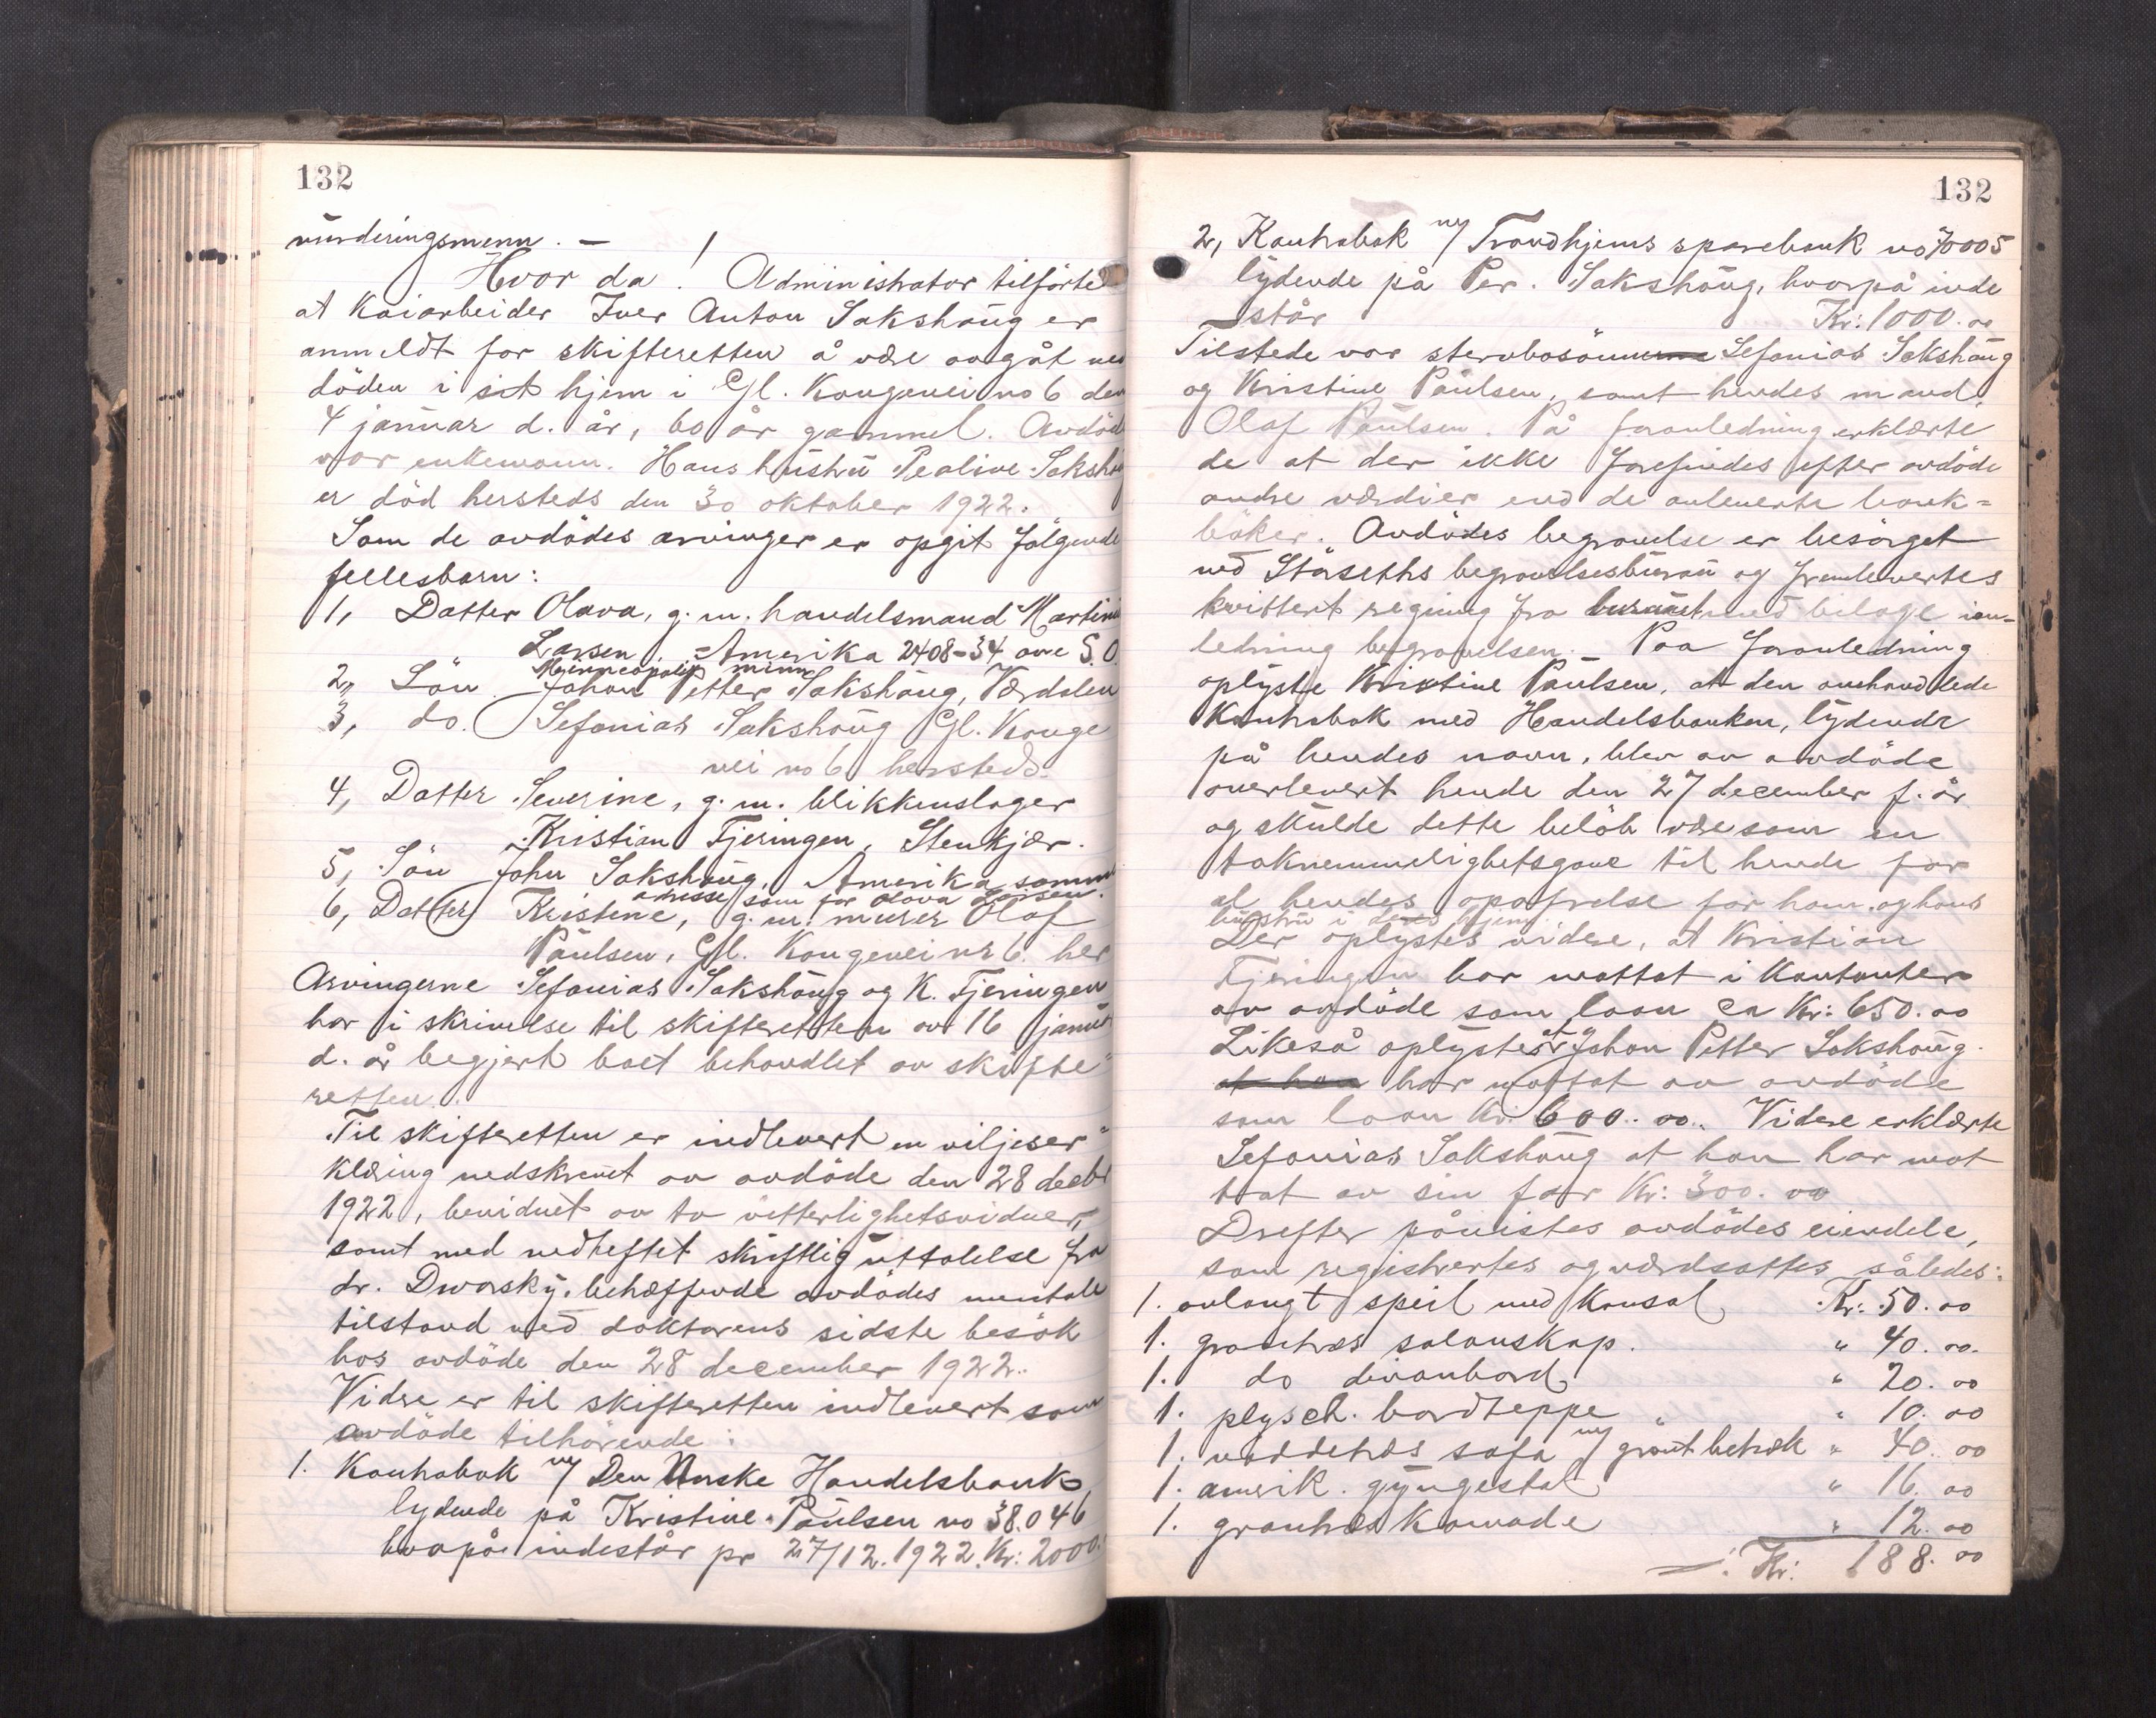 132
vurderingsmenn. —
Hvor da! Administrator tilførte
at Kaiarbeider Iver Anton Sakshaug er
anmeldt for skifteretten å være avgåt ved
døden i sit hjem i Gl. Kongevei no 6 den
4 januar d. år, 60 år gammel. Avdøde
var enkemann. Hans hustru Pealine Saksha
er død hersteds den 30 oktober 1922.
Som de avdødes arvinger er opgit følgende
fellesbarn:
1, Datter Olava, g. m. handelsmand Martin
Larsen, Amerika 2408-34 ave S.O
Minneapolis minn
2, Søn Johan Petter Sakshaug, Værdalen
3, do. Sefanias Sakshaug Gl. Konge
vei no 6 hersteds.
4, Datter Severine, g. m. blikkenslager
Kristian Fjeringen, Stenkjær.
5, Søn John Sakshaug, Amerika samme
adresse som for Olava Larsen.
6, Datter Kristine, g. m. murer Olaf
Paulsen, Gl. Kongevei nr 6. her
Arvingerne Sefanias Sakshaug og K. Fjeringen
har i skrivelse til skifteretten av 16 januar
d. år begjert boet behandlet av skifte-
retten.
Til skifteretten er indlevert en viljeser-
klæring nedskrevet av avdøde den 28 decbr
1922, bevidnet av to vitterlighetsvidner,
samt med vedheftet skriftlig uttalelse fra
dr. Dworsky, behæftende avdødes mentale
tilstand ved doktorens sidste besøk
hos avdøde den 28 december 1922.
Videre er til skifteretten indlevert som
avdøde tilhørende:
1. Kontrabok m/ Den Norske Handelsbank,
lydende på Kristine Paulsen no 38.046
hvorpå indestår pr 27/12. 1922. Kr: 2000.
132
2, Kontrabok m/ Trondhjems sparebank no 70005
lydende på Per. Sakshaug, hvorpå inde
står Kr: 1000.00
Tilstede var stervbosønnerne Sefanias Sakshaug
og Kristine Paulsen, samt hendes mand,
Olaf Paulsen. På foranledning erklærte
de at der ikke forefindes efter avdøde
andre værdier end de anleverte bank-
bøker. Avdødes begravelse er besørget
ved Støseths begravelsesbureau og fremlevertes
kvittert regning fra bureauet med bilage i an-
ledning begravelsen. — Paa foranledning
oplyste Kristine Paulsen, at den omhandlede
Kontrabok med Handelsbanken, lydende
på hendes navn, blev av avdøde
overlevert hende den 27 december f. år
og skulde dette beløb være som en
taknemmelighetsgave til hende for
al hendes opofrelse for ham og hans
hustru i deres hjem.
Der oplystes videre, at Kristian
Fjeringen har mottat i Kontanter
av avdøde som laan ca Kr: 650.00
Likeså oplystes at Johan Petter Sakshaug
at han har mottat av avdøde
som laan Kr. 600.00. Videre erklærte
Sefanias Sakshaug at han har mot
tat av sin far Kr: 300.00
Drefter påvistes avdødes eiendele,
som registrertes og værdsattes således:
1. avlangt speil med Konsol Kr: 50.00
1. grantræs salonskap. " 40.00.
1. do divanbord " 20.00
1. plysch. bordteppe " " 10.00
1. nøddetræs sofa m/ grønt betræk " 40.00
1. amerik. gyngestol " 16.00
1. grantræs Komode " 12.00
Kr: 188.00